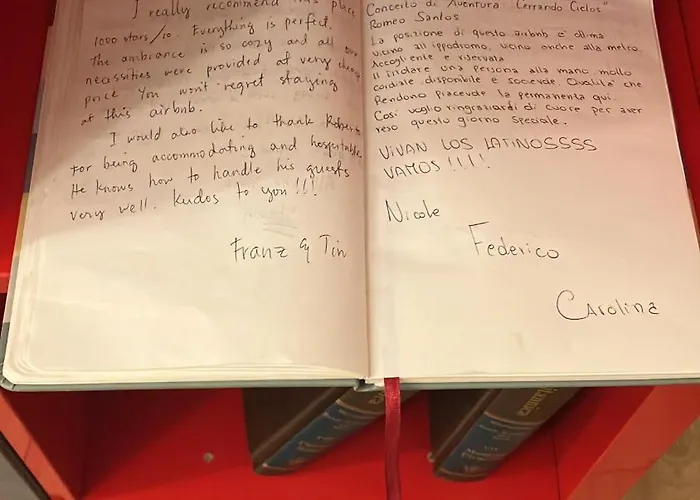 I really recommend this place
1000 stars/10. Everything is perfect.
The ambiance is so cozy and all our
necessities were provided at very cheap
price. You won't regret staying
at this airbnb.
I would also like to thank Roberto
for being accommodating and hospitable.
He knows how to handle his guests
very well. Kudos to you!!!
Franz & Tin
Concerto di Aventura "Cerrando Ciclos"
Romeo Santos
La posizione di questo airbnb è ottima
vicino all'ippodromo, vicino anche alla metro.
Accogliente e riservata
Il titolare una persona alla mano molto
cordiale disponibile e socievole. Qualità che
rendono piacevole la permanenza qui.
Così voglio ringraziardi di cuore per aver
reso questo giorno speciale.
VIVAN LOS LATINOSSSS
VAMOS !!!!
Nicole
Federico
Carolina